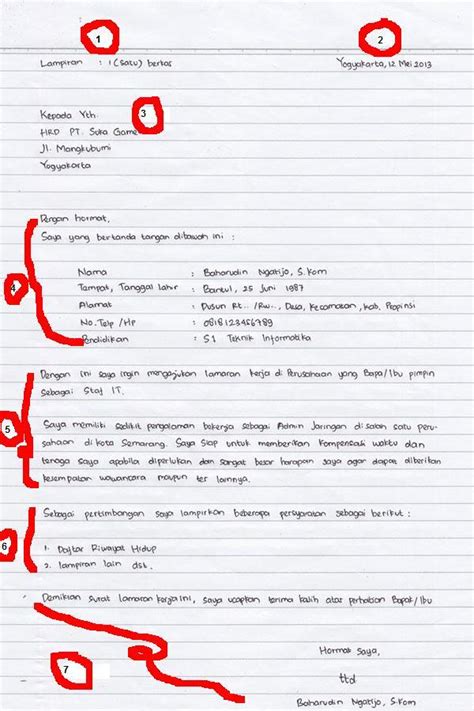 1
2
Lampiran : 1 (satu) berkas
Yogyakarta, 12 Mei 2013
Kepada Yth. 3
HRD PT. Suka Game
Jl. Mangkubumi
Yogyakarta
Dengan hormat,
Saya yang bertanda tangan dibawah ini :
4
Nama : Baharudin Ngatijo, S.Kom
Tempat, Tanggal lahir : Bantul, 25 Juni 1987
Alamat : Dusun Rt.. /Rw.., Desa, Kecamatan, Kab, Propinsi
No.Telp /Hp : 0818123456789
Pendidikan : S1 Teknik Informatika
Dengan ini saya ingin mengajukan lamaran kerja di Perusahaan yang Bapa/Ibu pimpin
Sebagai Staf IT.
5
Saya memiliki sedikit pengalaman bekerja sebagai Admin Jaringan di salah satu peru-
sahaan di kota Semarang. Saya siap untuk memberikan kompensasi waktu dan
tenaga saya apabila diperlukan dan sangat besar harapan saya agar dapat diberikan
kesempatan wawancara maupun tes lainnya.
Sebagai pertimbangan saya lampirkan beberapa persyaratan sebagai berikut :
6
1. Daftar Riwayat Hidup
2. lampiran lain dst.
Demikian surat lamaran kerja ini, saya ucapkan terima kasih atas perhatian Bapak/Ibu
7
Hormat Saya,
ttd
Baharudin Ngatijo, S.Kom